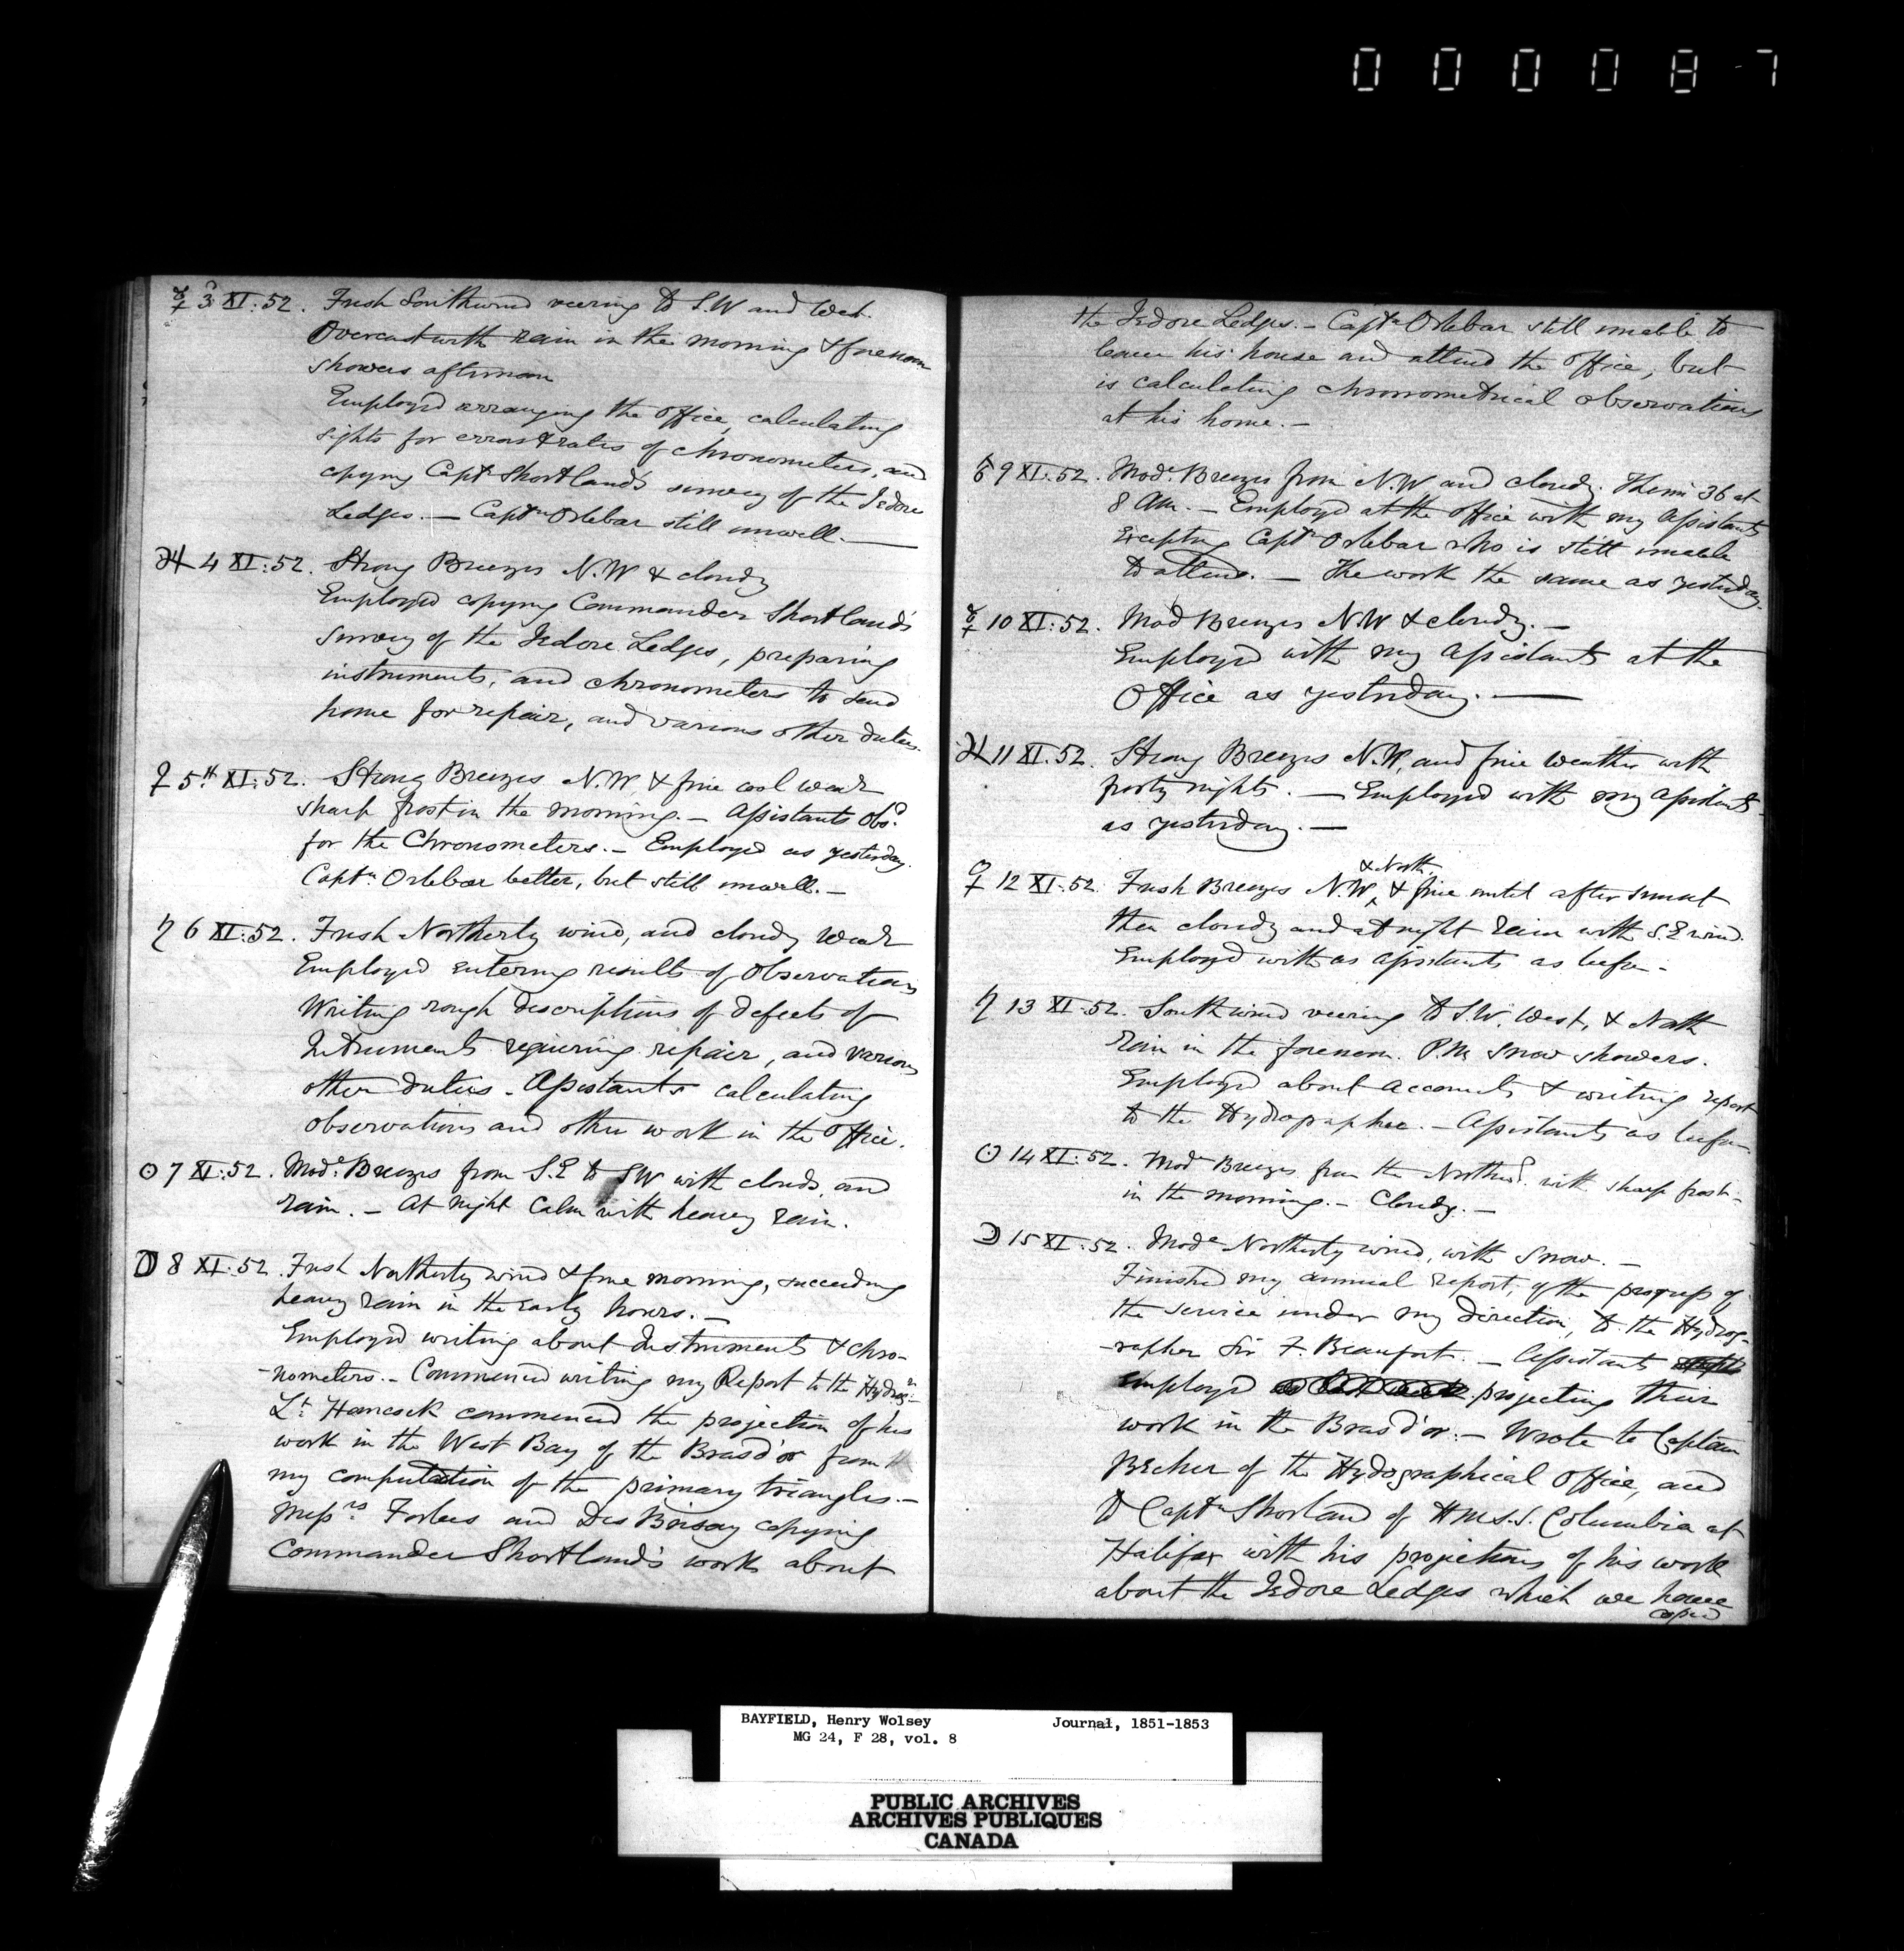 0 0 0 0 8 7
☿ 3 XI: 52. Fresh South wind veering to S.W and West.
Overcast with rain in the morning & forenoon
showers afternoon
Employed arranging the office, calculating
sights for errors & rates of chronometers, and
copying Captn Shortland's survey of the Isdore
Ledges. — Captn Orlebar still unwell. —
♃ 4 XI: 52. Strong Breezes N.W & cloudy
Employed copying Commander Shortland's
survey of the Isdore Ledges, preparing
instruments, and chronometers to send
home for repair, and various other duties.
♀ 5th XI: 52. Strong Breezes N.W. & fine cool weath
sharp frost in the morning. — Assistants obsd
for the Chronometers. — Employed as yesterday.
Captn Orlebar better, but still unwell. —
♄ 6 XI: 52. Fresh Northerly wind, and cloudy weath
Employed entering results of observations
Writing rough descriptions of defects of
Intruments requiering repair, and various
other duties. Assistants calculating
observations and other work in the Office.
☉ 7 XI: 52. Mode Breezes from S.E to SW with clouds, and
rain. — At night Calm with heavy rain.
☽ 8 XI: 52. Fresh Northerly wind & fine morning, succeeding
heavy rain in the early hours. —
Employed writing about Instruments & chro-
-nometers. — Commenced writing my Report to the Hydrogr
Lt Hancock commenced the projection of his
work in the West Bay of the Bras d'or from
my computation of the primary triangles. —
Messrs Forbes and Des Brisay copying
Commander Shortland's work about
the Isdore Ledges. — Captn Orlebar still unable to
leave his house and attend the office, but
is calculating chronometrical observations
at his home. —
♂ 9 XI: 52. Mode Breezes from N.W and cloudy. Therm 36 at
8 AM. — Employed at the office with my Assistants
Excepting Captn Orlebar who is still unable
to attend. — The work the same as yesterday.
☿ 10 XI: 52. Mod Breezes N.W & cloudy. —
Employed with my Assistants at the
Office as yesterday. —
♃ 11 XI. 52. Strong Breezes N.W, and fine weather with
frosty nights. — Employed with my Assistants
as yesterday. —
& North
♀ 12 XI. 52. Fresh Breezes N.W, & fine until after sunset
then cloudy and at night rain with S.E wind.
Employed with as assistants as before -
♄ 13 XI. 52. South wind veering to S.W. West, & North
rain in the forenoon. P.M. Snow showers.
Employed about accounts & writing report
to the Hydrographer. — Assistants as before
☉ 14 XI: 52. Mode Breezes from the Northwd. with sharp frost -
in the morning. — Cloudy. —
☽ 15 XI: 52. Mode Northerly wind, with Snow. —
Finished my annual report, of the progress of
the service under my direction, to the Hydrog-
-rapher Sir F. Beaufort. — Assistants
Employed projecting their
work in the Bras d'or. — Wrote to Captain
Becher of the Hydrographical office, and
to Captn Shorland of H.M.S.S. Columbia at
Halifax with his projections of his work
about the Isdore Ledges which we have
copied
BAYFIELD, Henry Wolsey Journal, 1851-1853
MG 24, F 28, vol. 8
PUBLIC ARCHIVES
ARCHIVES PUBLIQUES
CANADA